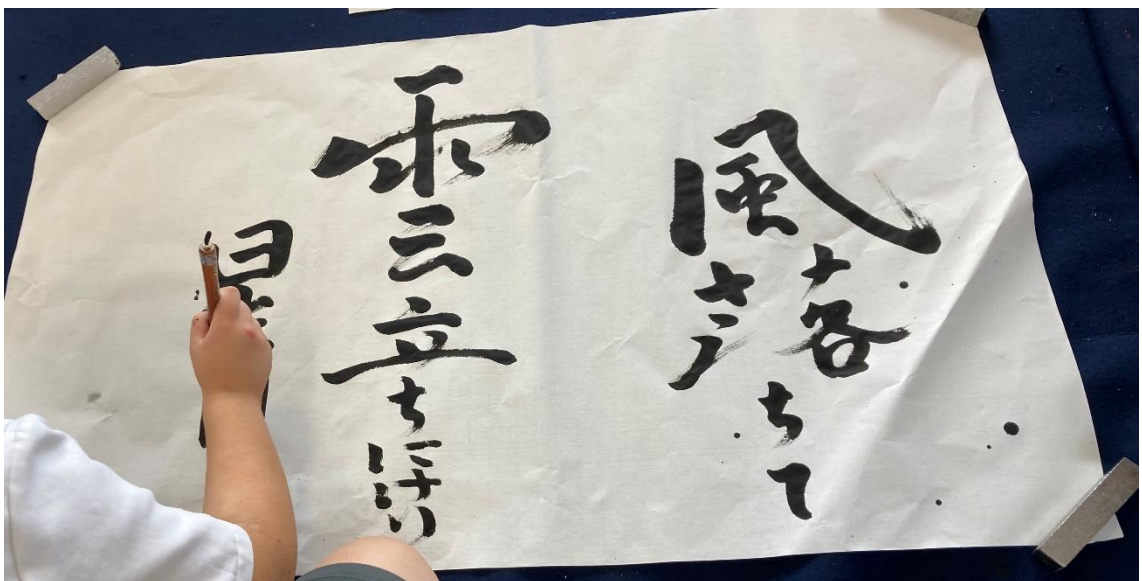 風落ちて
雲立ちにけり